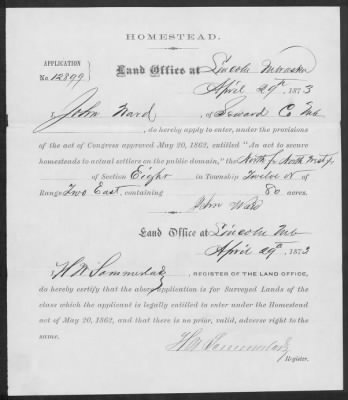 HOMESTEAD.
APPLICATION
No. 12899
Land Office at Lincoln Nebraska
April 29th, 1873
I, John Ward, of Seward Co Neb
, do hereby apply to enter, under the provisions
of the act of Congress approved May 20, 1862, entitled "An act to secure
homesteads to actual settlers on the public domain," the North ½ North West ¼
of Section Eight in Township Twelve N of
Range Two East, containing 80 acres.
John Ward
Land Office at Lincoln Neb
April 29th, 1873
I, REGISTER OF THE LAND OFFICE,
do hereby certify that the above application is for Surveyed Lands of the
class which the applicant is legally entitled to enter under the Homestead
act of May 20, 1862, and that there is no prior, valid, adverse right to the
same.
Register.